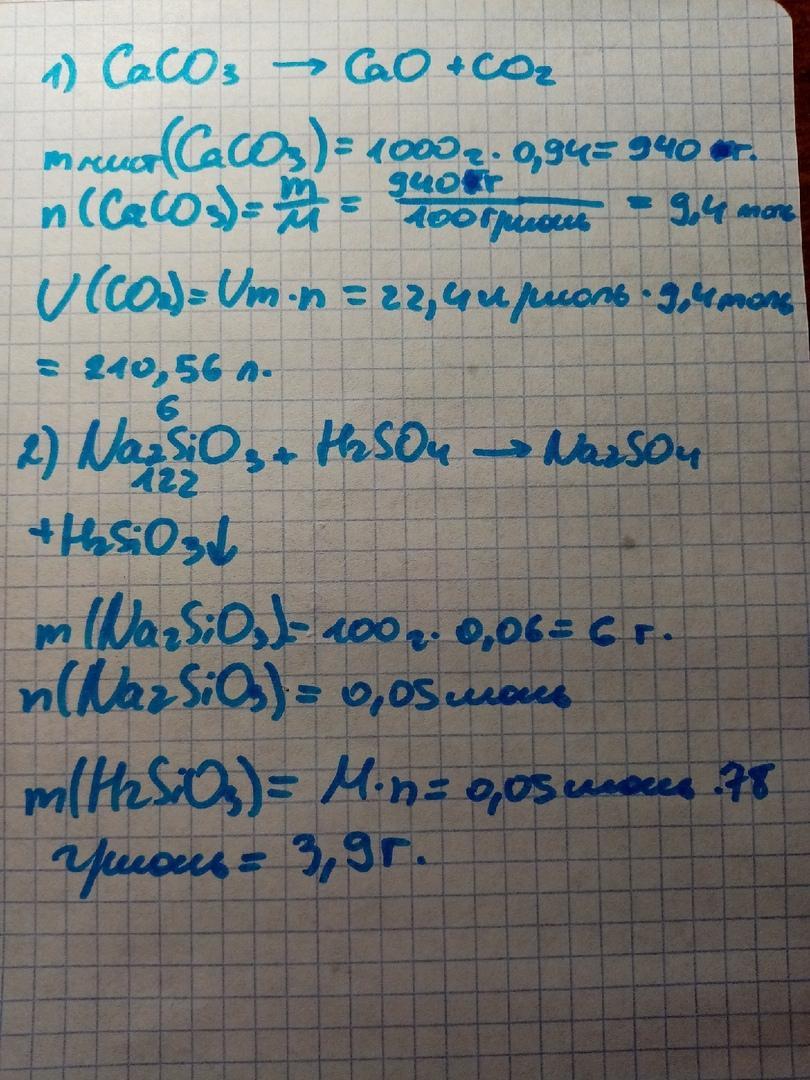 1) CaCO3 → CaO + CO2
m чист(CaCO3) = 1000г · 0,94 = 940 г.
n (CaCO3) = m/M = 940 г/100 г/моль = 9,4 моль
V(CO2) = Vm·n = 22,4 л/моль · 9,4 моль
= 210,56 л.
6
2) Na2SiO3 + H2SO4 → Na2SO4
122
+ H2SiO3↓
m (Na2SiO3) = 100 г · 0,06 = 6 г.
n(Na2SiO3) = 0,05 моль
m(H2SiO3) = M·n = 0,05 моль · 78
г/моль = 3,9 г.